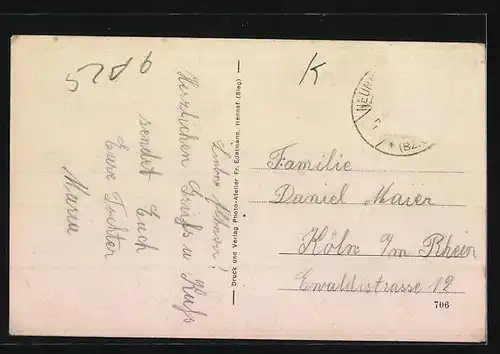 9825
K
NEUN
Liebe Eltern!
Herzlichen Gruß u Kuß
sendet Euch
Eure Tochter
Maria
Druck und Verlag Photo-Atelier Fr. Edelmann, Hennef (Sieg)
Familie
Daniel Maier
Köln a/m Rhein
Ewaldistrasse 12
706